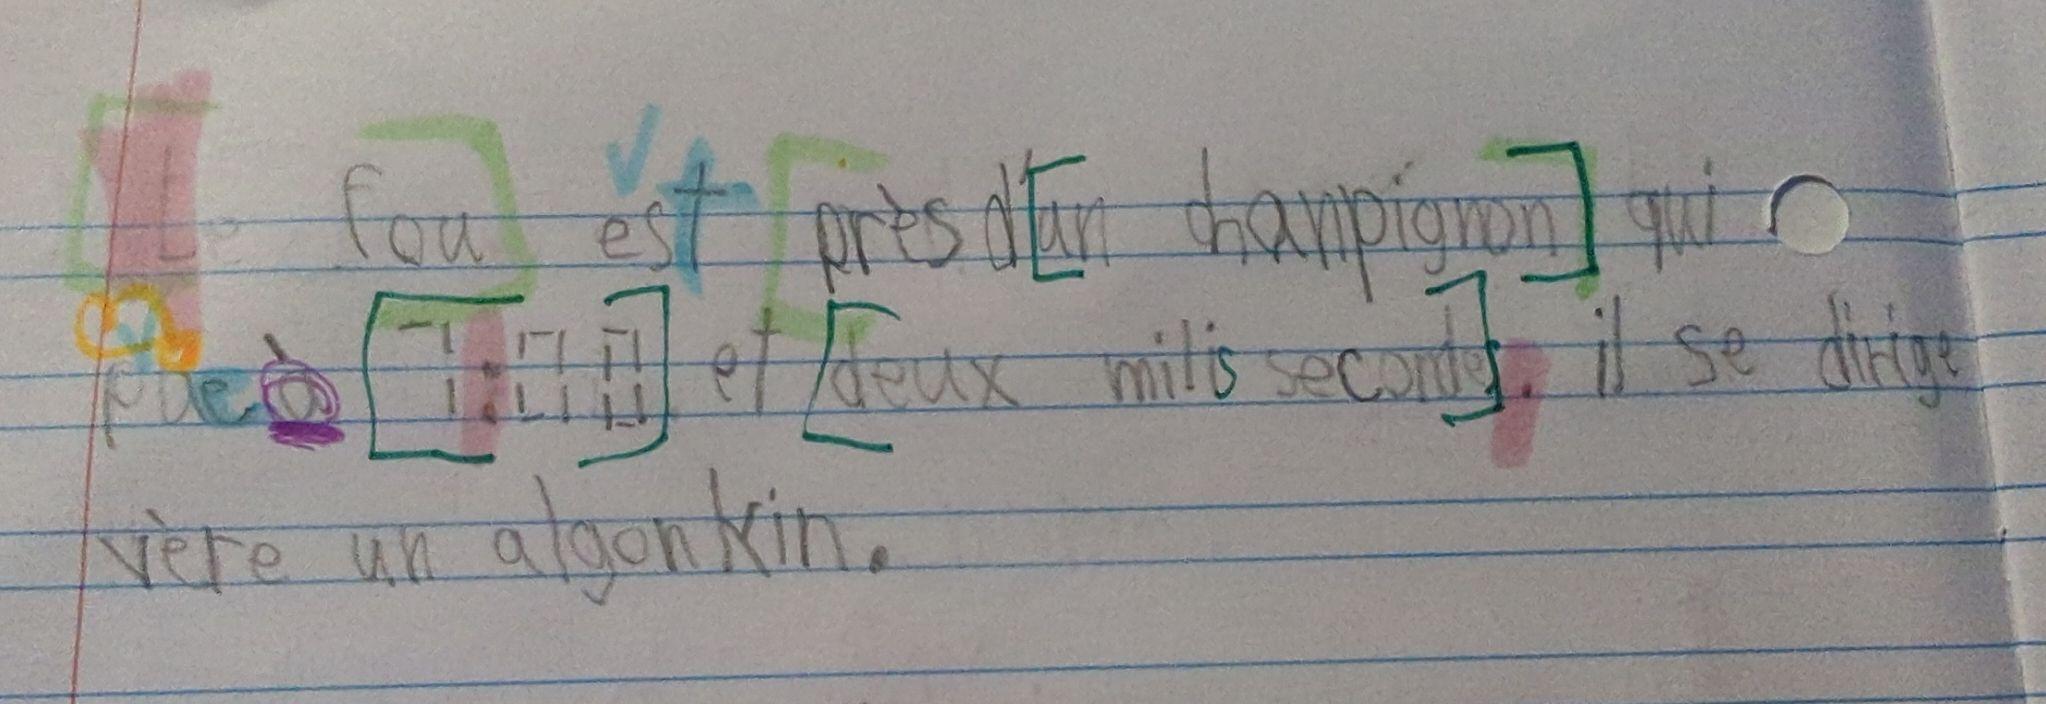 Le fou est près d'un chanpignon qui
pue à 7:00 et deux milis seconde. il se dirige
vère un algonkin.